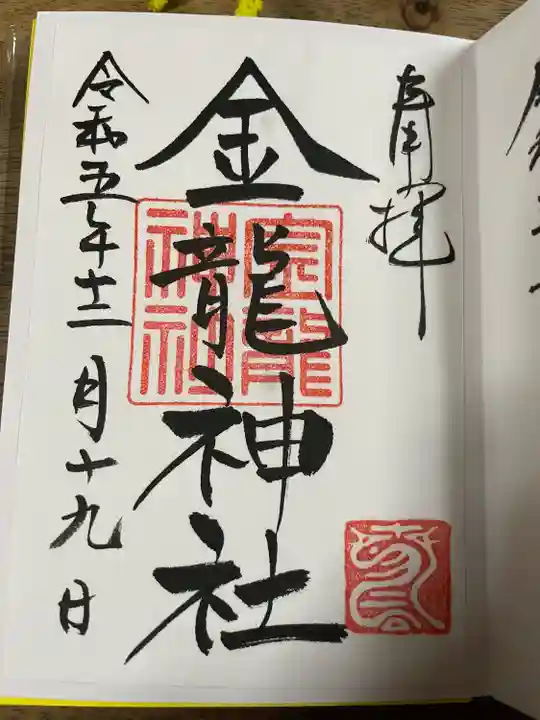 奉拝
金龍神社
金龍神社
令和五年十二月十九日